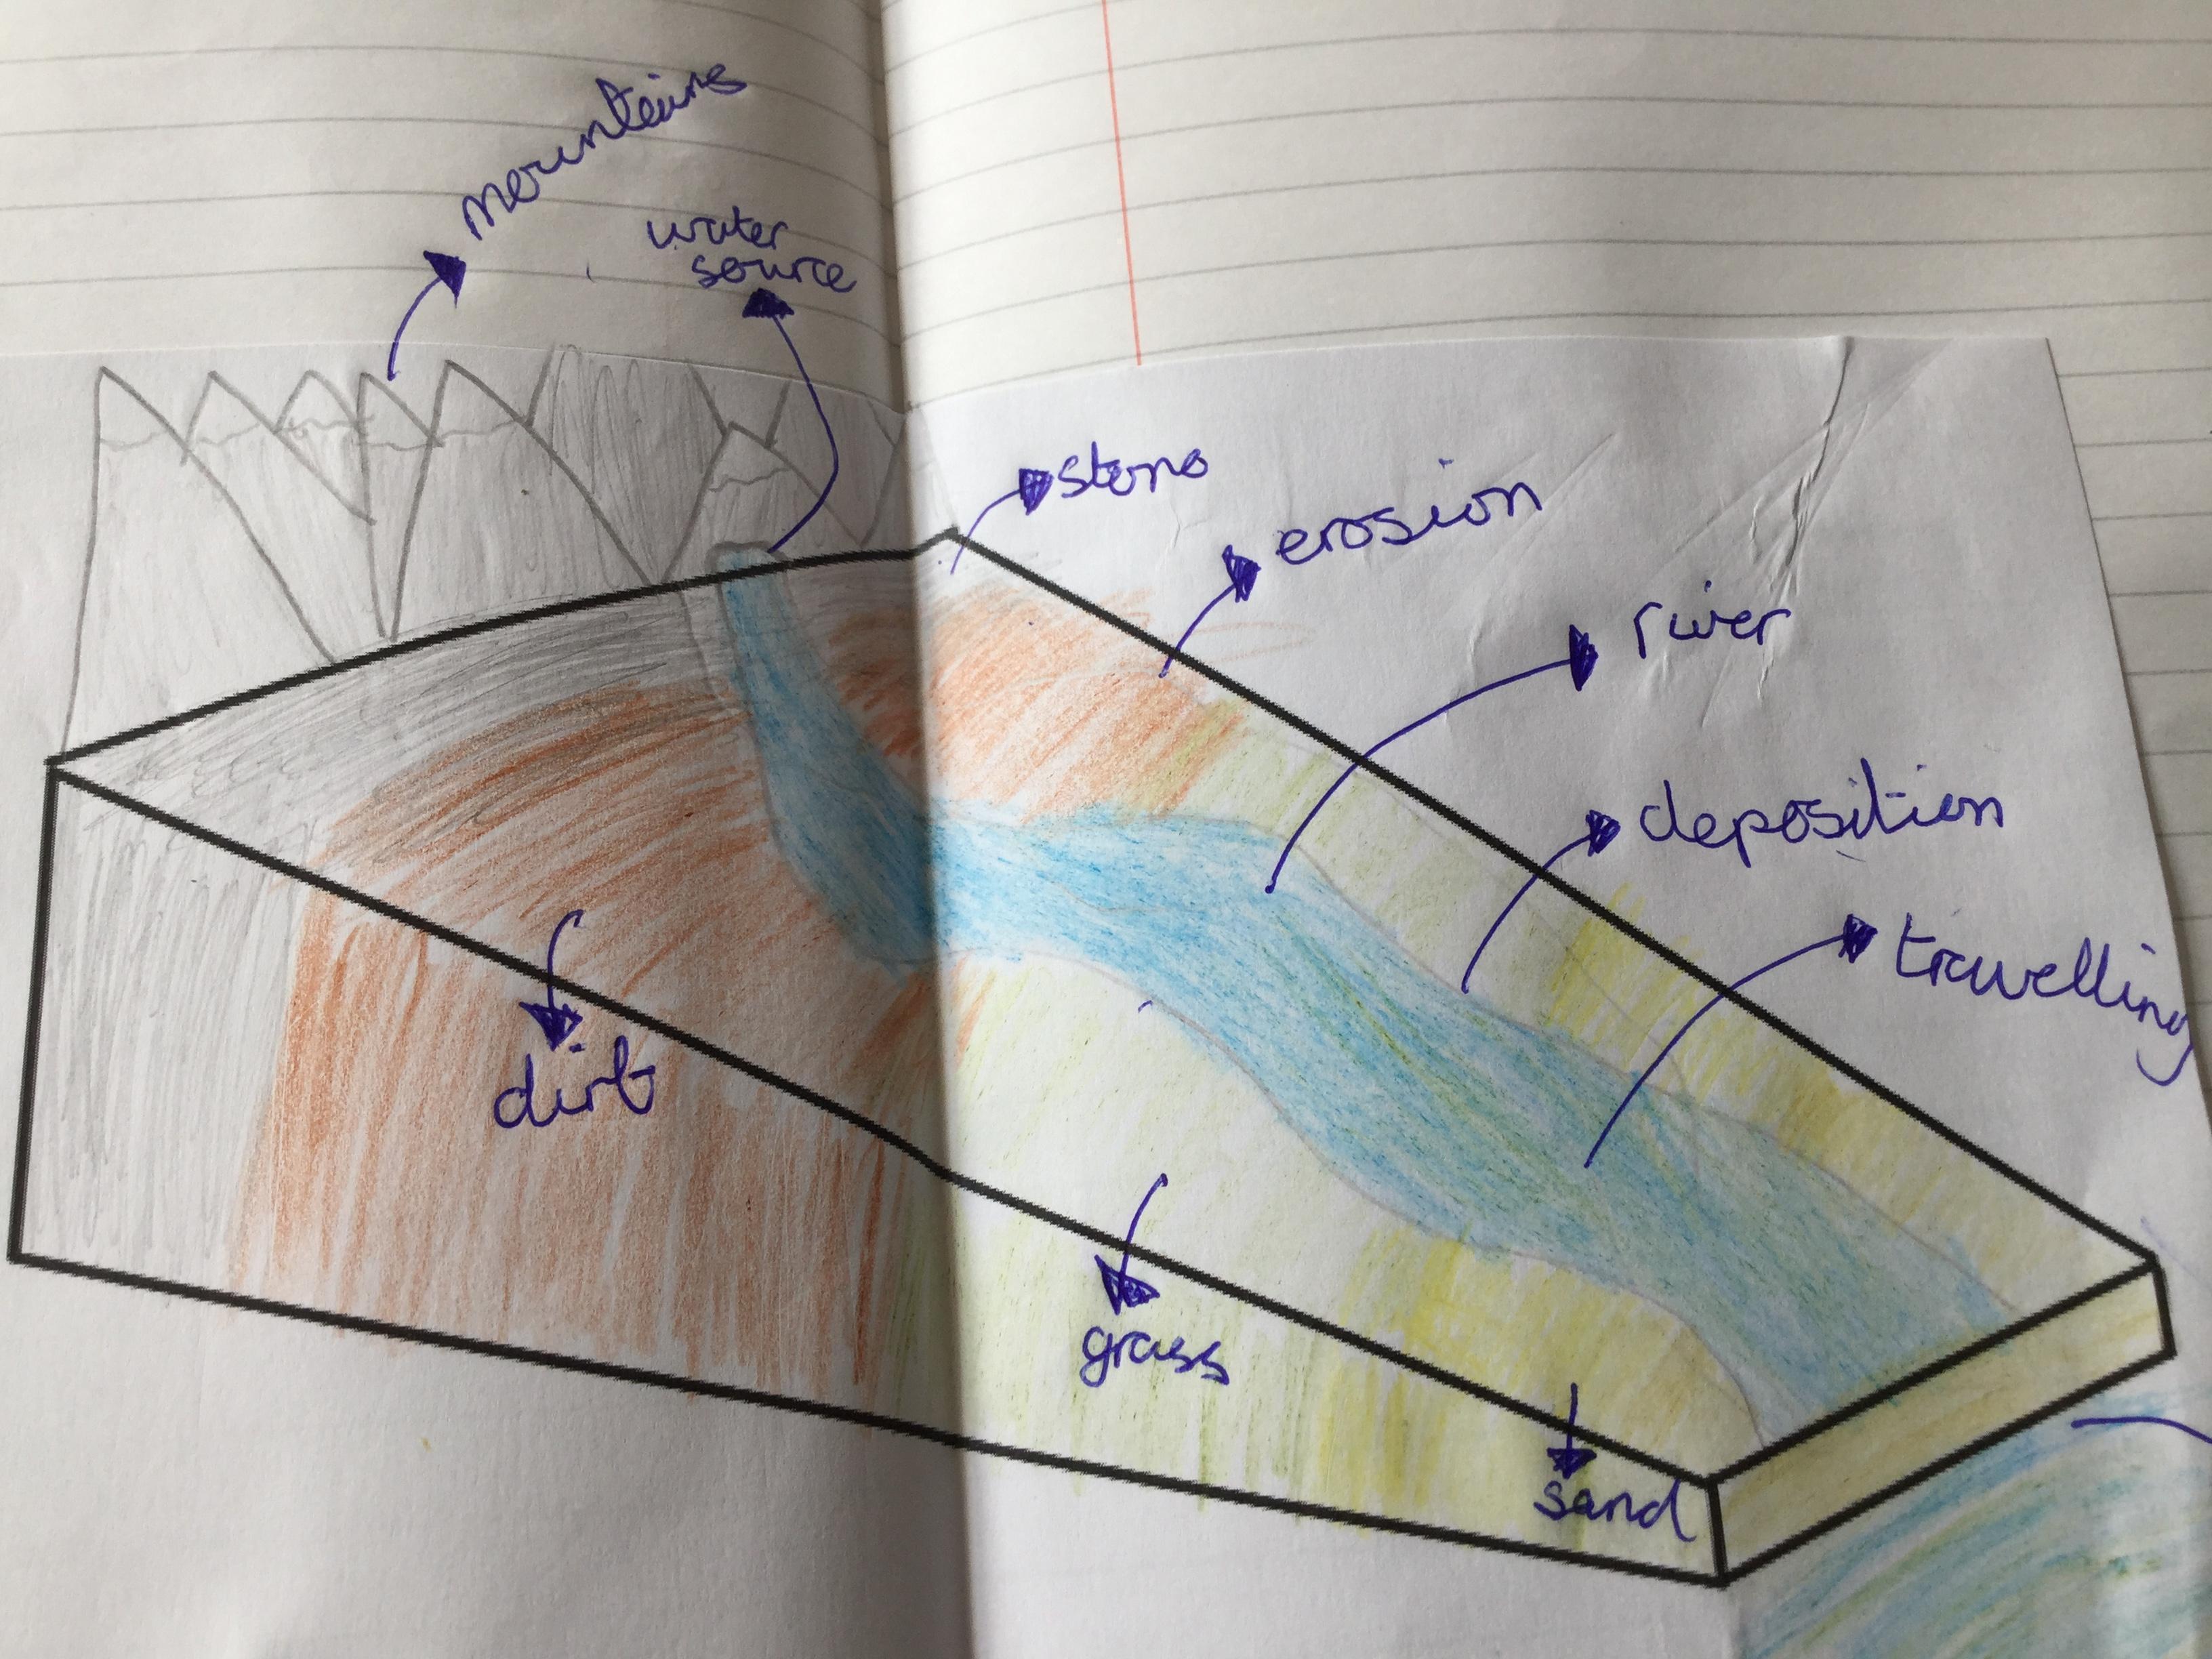 mountains
water
source
stone
erosion
river
deposition
travelling
dirt
grass
sand